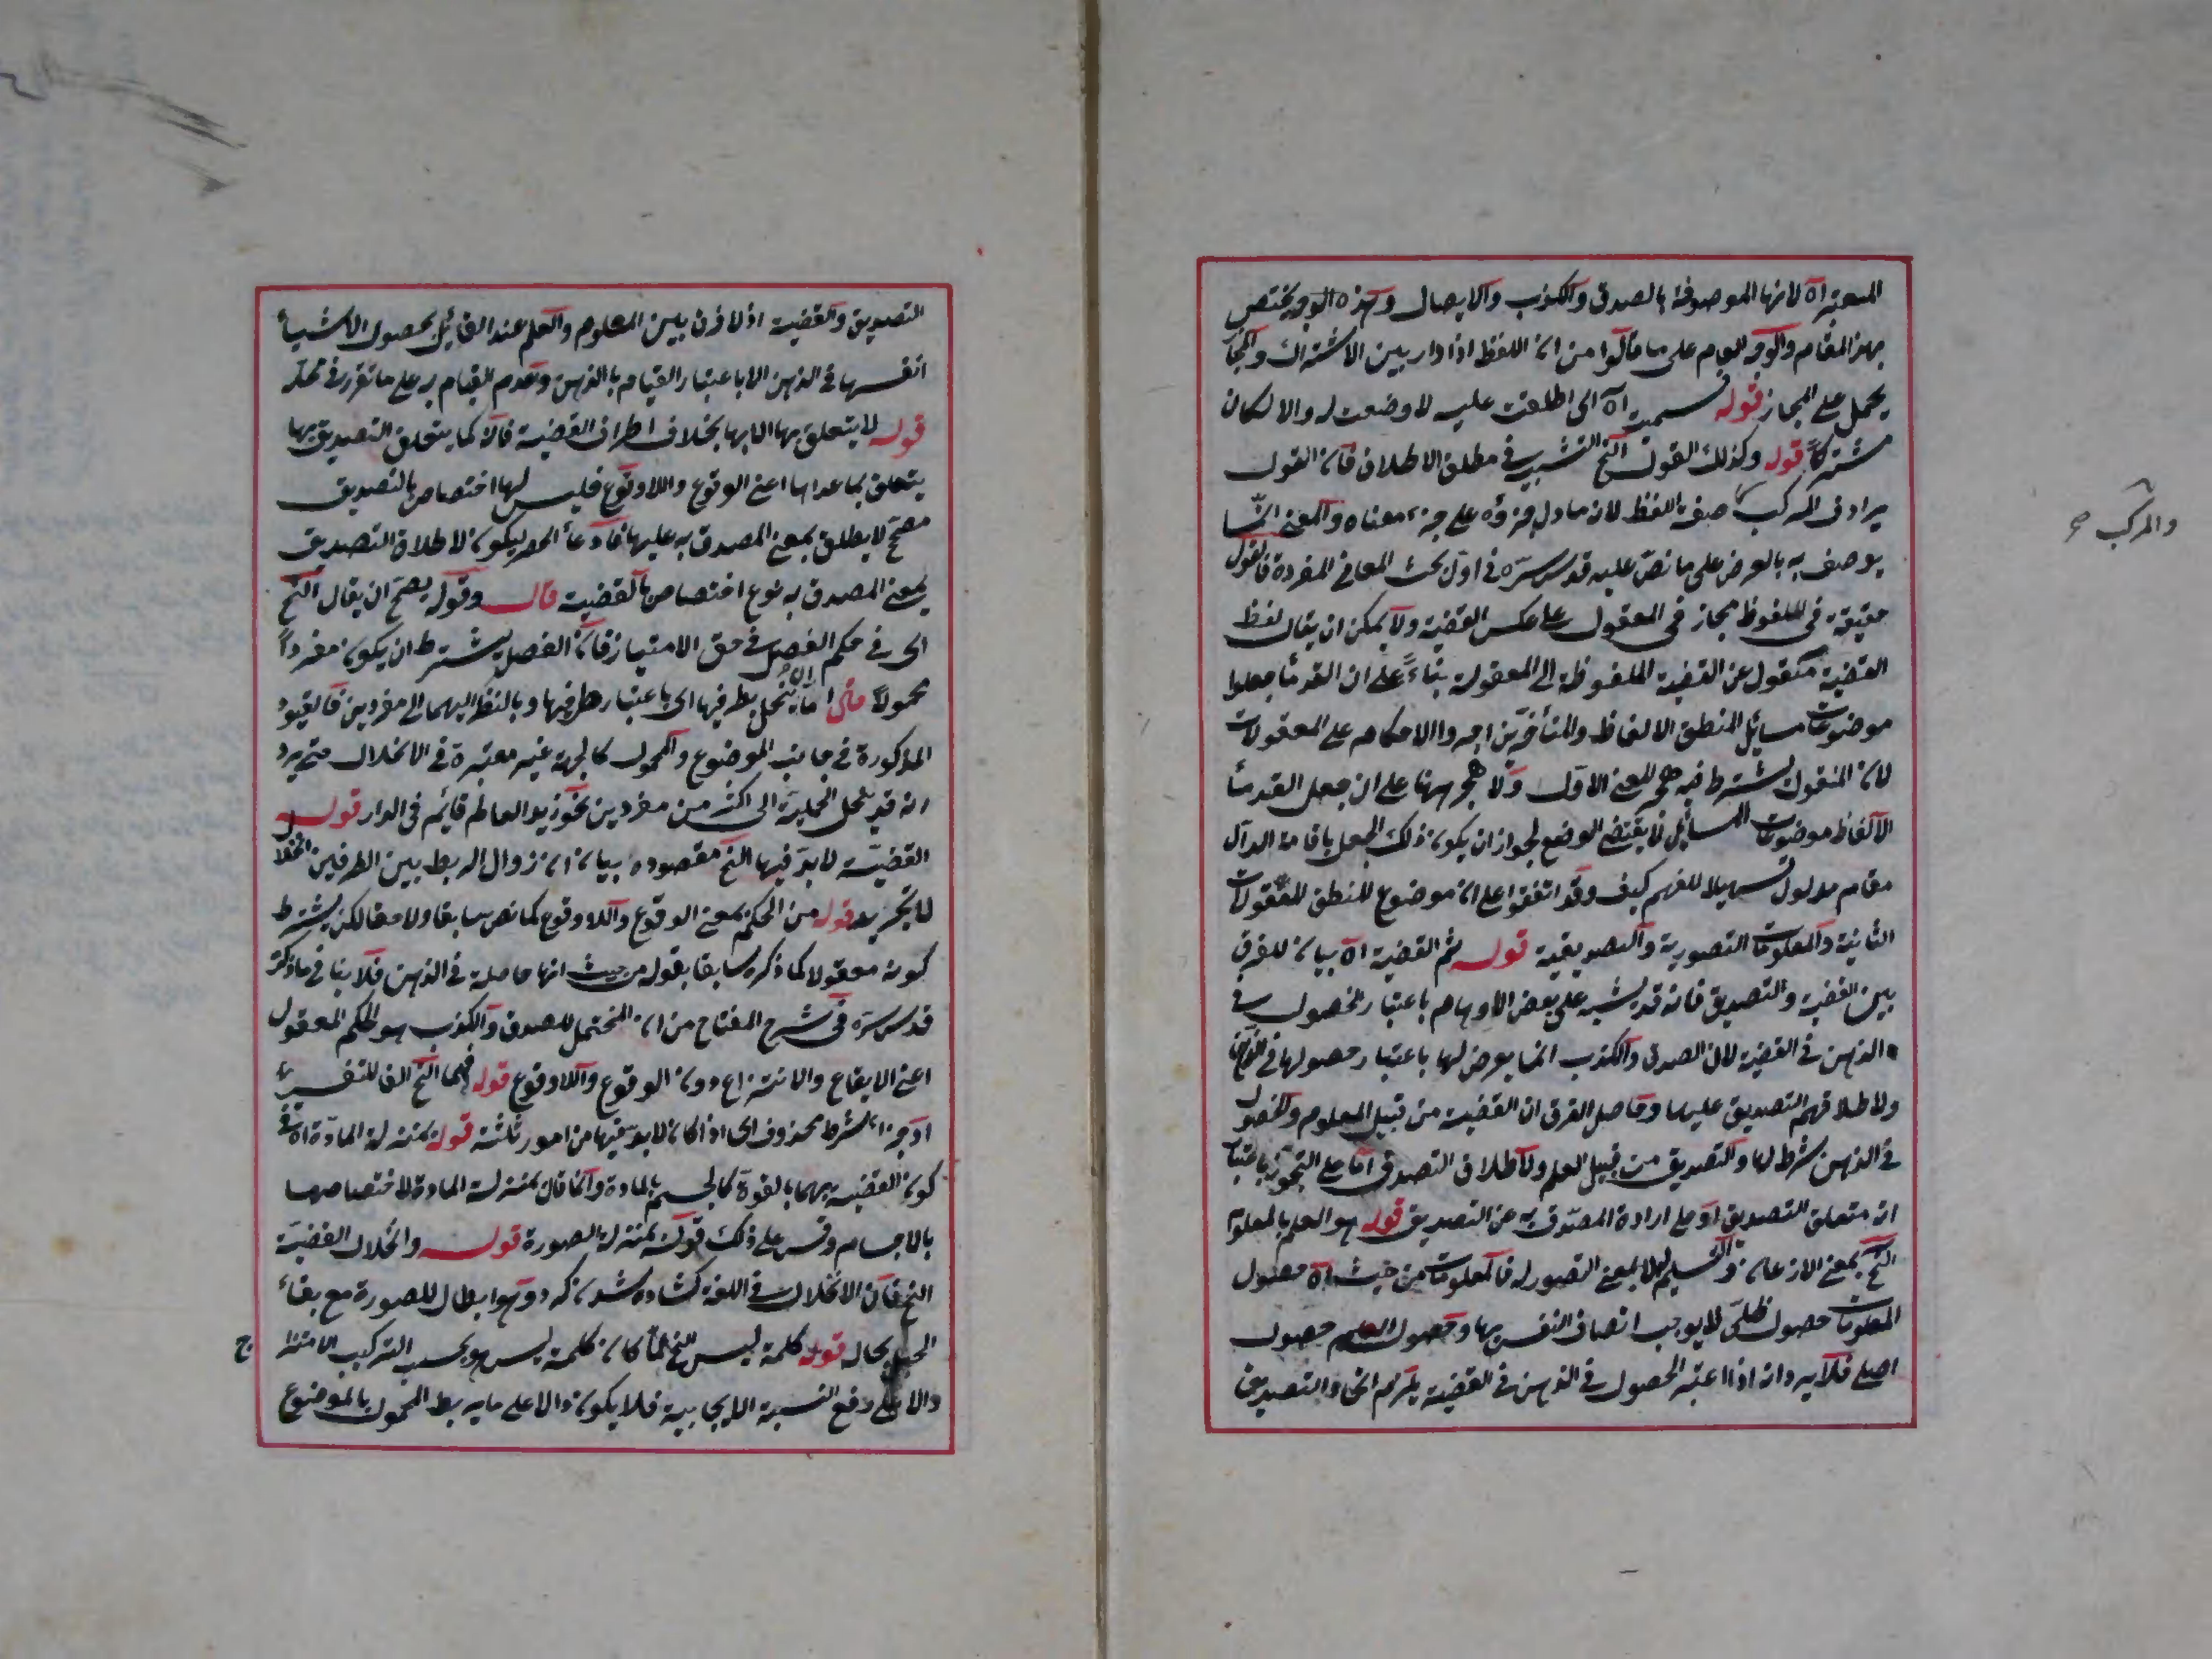 المعتبر اه لانها الموصوفة بالصدق والكذب والايصال وهذه الوجه يختص
بهذا المقام والوجه العام على ما قالوا من ان اللفظ اذا دار بين الاشتراك والمجاز
يحمل على المجاز قوله سميت اه اى اطلقت عليه لا وضعت له والا لكان
مشتركا قوله وكذلك القول الخ التشبيه فى مطلق الاطلاق فان القول
يرادف المركب صفة اللفظ لان ما دل جزؤه على جزء معناه والمعنى انما
والمركب صح
يوصف به بالعرض على ما نص عليه قدس سره فى اول بحث المعانى المفردة فالقول
حقيقة فى الملفوظ مجاز فى المعقول على عكس القضية ولا يمكن ان يقال لفظ
القضية منقول عن القضية الملفوظة الى المعقولة بناءً على ان القدماء جعلوا
موضوعات مسائل المنطق الالفاظ والمتأخرين اجروا الاحكام على المعقولات
لان المنقول يشترط فيه هجر المعنى الاول ولا هجر ههنا على ان جعل القدماء
الالفاظ موضوعات المسائل لا يقتضى الوضع لجواز ان يكون ذلك الجعل باقامة الدال
مقام مدلول تسهيلا للفهم كيف وقد اتفقوا على ان موضوع المنطق المعقولات
الثانية والمعلومات التصورية والتصديقية قوله ثم القضية اه بيان للفرق
بين القضية والتصديق فانه قد يشتبه على بعض الاوهام باعتبار الحصول فى
الذهن فى القضية لان الصدق والكذب انما يعرض لها باعتبار حصولها فى الذهن
ولاطلاقهم التصديق عليها وحاصل الفرق ان القضية من قبيل المعلوم والحصول
فى الذهن شرط لها والتصديق من قبيل العلم ولاطلاق التصديق اما على التجوز باعتبار
انه متعلق التصديق او على ارادة المصدق به عن التصديق قوله هو العلم بالمعلوم
الخ بمعنى الاذعان والتسليم لها لا بمعنى التصور له فالمعلومات من حيث اه حصول
المعلومات حصول ظلى لا يوجب اتصاف النفس بها وحصول العلم حصول
اصلى فلا يرد انه اذا اعتبر الحصول فى الذهن فى القضية يلزم اتحاد التصديق
التصديق والقضية اذ لا فرق بين المعلوم والعلم عند القائل بحصول الاشياء
انفسها فى الذهن الا باعتبار القيام بالذهن وعدم القيام به على ما تقرر فى محله
قوله لا يتعلق بها الا بها بخلاف اطراف القضية فانه كما يتعلق التصديق بها
يتعلق بما عداها اعنى الوقوع واللاوقوع فليس لها اختصاص بالتصديق
مصحح لا يطلق بمعنى المصدق به عليها فادعاء الحصر ليكون لاطلاق التصديق
بمعنى المصدق به نوع اختصاص بالقضية قال وقوله يصح ان يقال الخ
اى فى حكم الفصل فى حق الامتياز فان الفصل يشترط ان يكون مفرداً
محمولاً قال اما ان ينحل بطرفيها اى باعتبار طرفيها وبالنظر اليهما الى مفردين فالقيود
المذكورة فى جانب الموضوع والمحمول كالجهة غير معتبرة فى الانحلال حتى يرد
انه قد ينحل الحملية الى اكثر من مفردين نحو زيد العالم قائم فى الدار قوله
القضية لا بد فيها الخ مقصوده بيان ان زوال الربط بين الطرفين انحلال
لا تجريد قوله من الحكم بمعنى الوقوع واللاوقوع كما نص سابقا ولاحقا لكن يشترط
كونه معقولا كما ذكره سابقا بقوله من حيث انها حاصلة فى الذهن فلا ينافى ما ذكره
قدس سره فى شرح المفتاح من ان المحتمل للصدق والكذب هو الحكم المعقول
اعنى الايقاع والانتزاع دون الوقوع واللاوقوع قوله فهما الخ الفا للتفسير
او جزاء لشرط محذوف اى اذا كان لا بد فيها من امور ثلثة قوله بمنزلة المادة اه فى
كون القضية بهما بالقوة كالجسم بالمادة وانما قال بمنزلة المادة لاختصاصها
بالاجسام وقس على ذلك قوله بمنزلة الصورة قوله وانحلال القضية
الخ فان الانحلال فى اللغة كشاده شدن كره وهو ابطال للصورة مع بقاء
الحبل بحاله قوله كلمة ليس الخ لما كان كلمة ليس هو بحسب التركيب الامتزاج
دالا على رفع النسبة الايجابية فلا يكون دالا على ما يربط المحمول بالموضوع